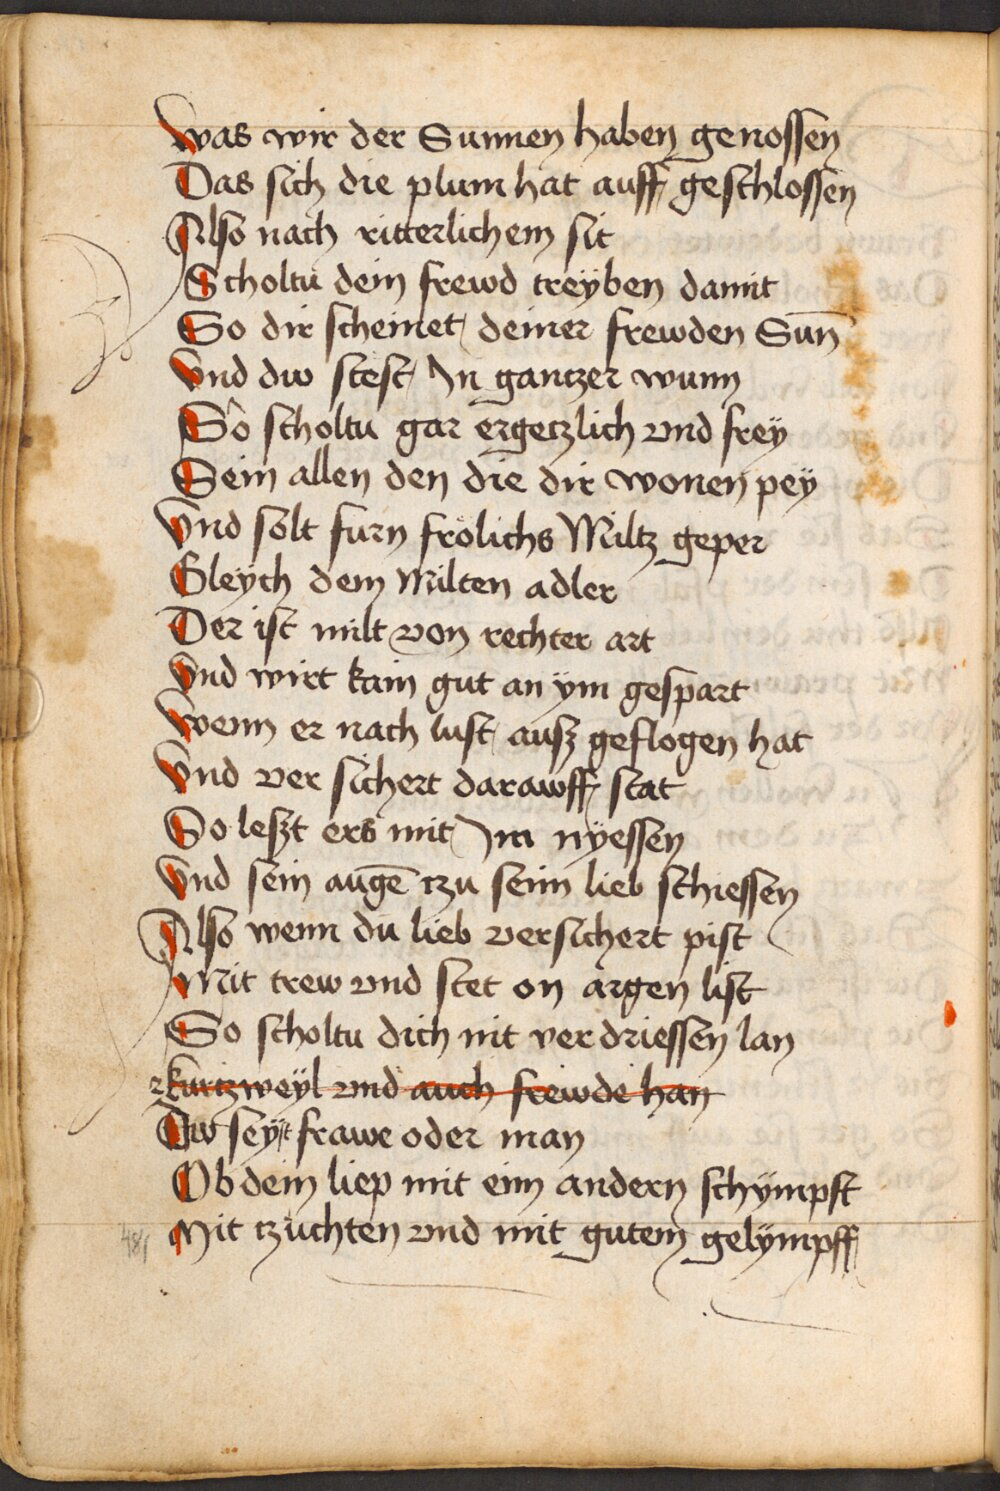 Was wir der Sunnen haben genossen
Das sich die plum hat auff geschlossen
Also nach ritterlichem sit
Scholtu dein frewd treyben damit
So dir scheinet deiner frewden Sun̄
Vnd dw stest In gantzer wunn
So scholtu gar ergetzlich vnd frey
Sein allen den die dir wonen pey
Vnd solt furn frölichs Miltz geper
Gleych dem Milten adler
Der ist milt von rechter art
Vnd wirt kain gut an ym gespart
Wenn er nach lust ausz geflogen hat
Vnd ver sichert darawff stat
So leszt ers mit Im nyessen
Vnd sein augē tzu seim lieb schiessen
Also wenn du lieb versichert pist
Mit trew vnd stet on argen list
So scholtu dich nit ver driessen lan
kurtzweyl vnd auch frewde han
Dw seyst frawe oder man
Ob dein liep mit eim andern schympft
Mit tzuchten vnd mit gutem gelympff